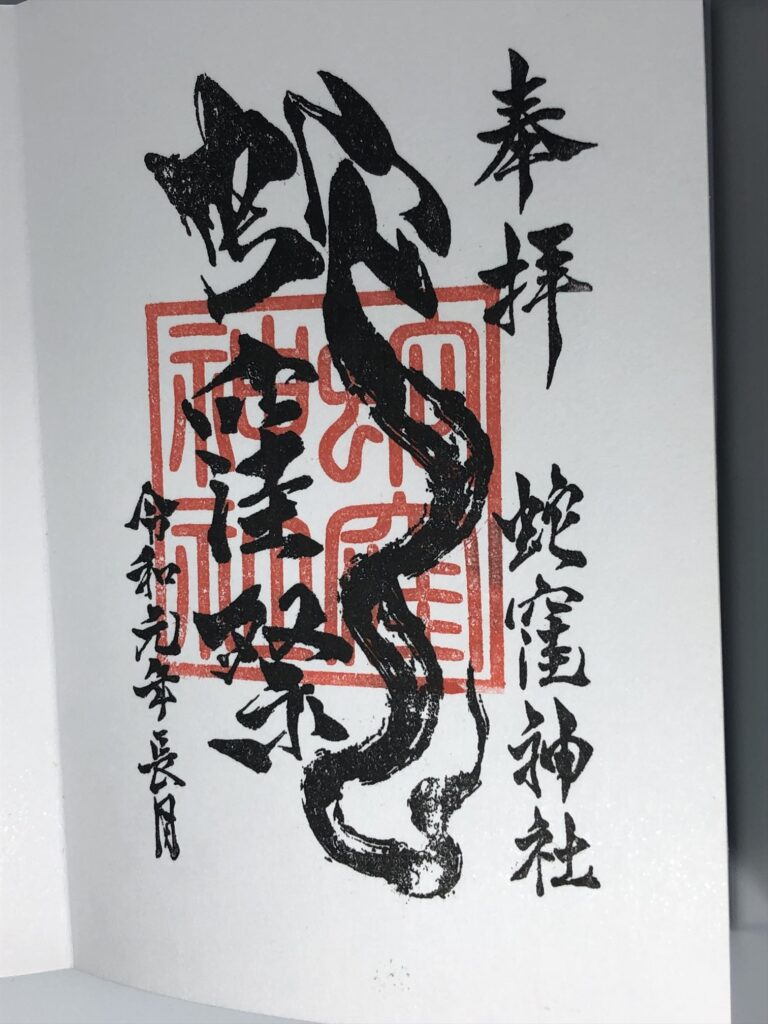 奉拝
蛇窪神社
蛇窪祭
蛇窪神社
令和元年長月